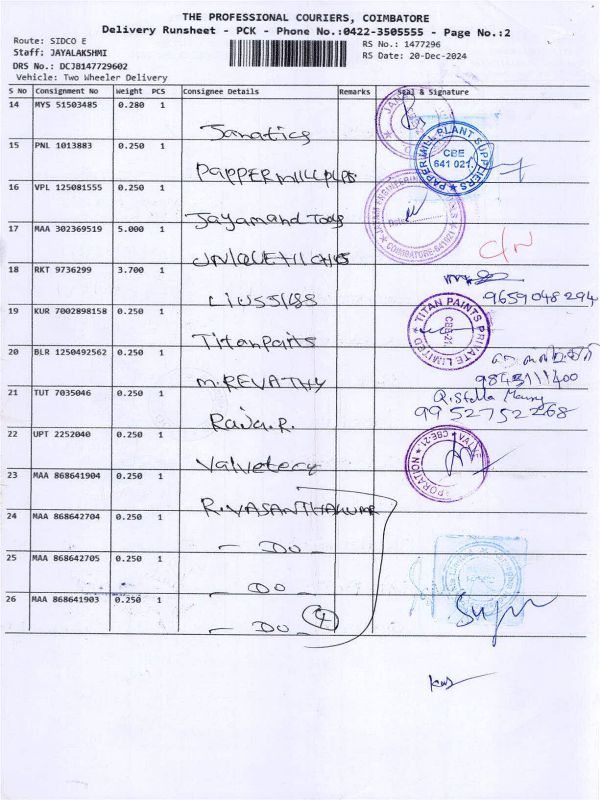 THE PROFESSIONAL COURIERS, COIMBATORE
Delivery Runsheet - PCK - Phone No.:0422-3505555 - Page No.:2
Route: SIDCO E
RS No.: 1477296
Staff: JAYALAKSHMI
RS Date: 20-Dec-2024
DRS No.: DCJB147729602
Vehicle: Two Wheeler Delivery
S No Consignment No Weight PCS Consignee Details Remarks Seal & Signature
14 MYS 51503485 0.280 1
Janatics
15 PNL 1013883 0.250 1
PAPPERMILL PLPS
PAPERMILL PLANT SUPPLIERS
CBE
641 021.
16 VPL 125081555 0.250 1
Jayamand Tools
COIMBATORE-641021
17 MAA 302369519 5.000 1
C/N
18 RKT 9736299 3.700 1
9659048294
19 KUR 7002898158 0.250 1
Titanpaints
TITAN PAINTS PRIVATE LIMITED
CBE-21
20 BLR 1250492562 0.250 1
M.REVATHY
9843111400
21 TUT 7035046 0.250 1
Raja.R.
R.Stella Mary
9952752268
22 UPT 2252040 0.250 1
Valvetecy
CBE-21
23 MAA 868641904 0.250 1
R.VASANTHAKUMAR
24 MAA 868642704 0.250 1
- DO -
25 MAA 868642705 0.250 1
- DO -
26 MAA 868641903 0.250 1
- DO - 4